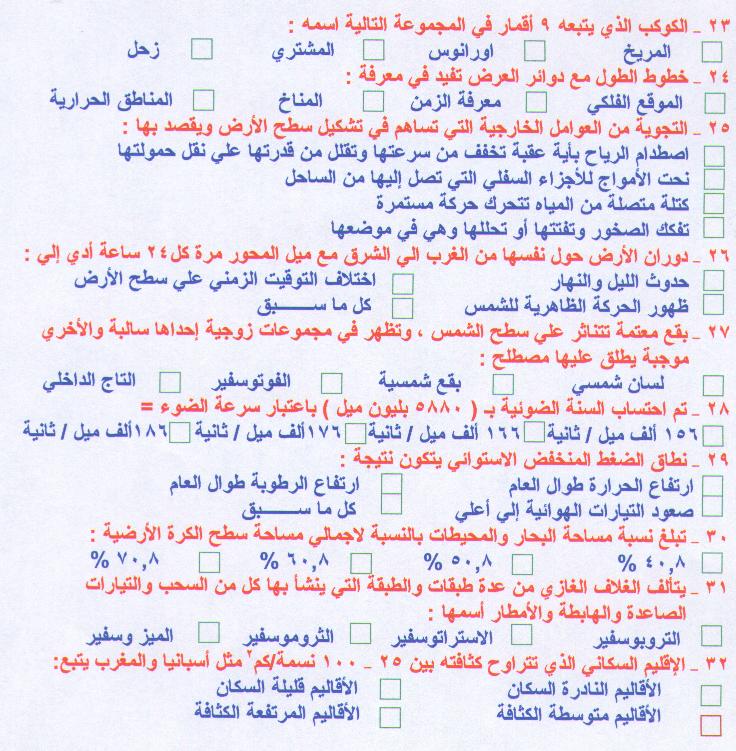 ٢٣ ـ الكوكب الذي يتبعه ٩ أقمار في المجموعة التالية اسمه :
المريخ اورانوس المشتري زحل
٢٤ ـ خطوط الطول مع دوائر العرض تفيد في معرفة :
الموقع الفلكي معرفة الزمن المناخ المناطق الحرارية
٢٥ ـ التجوية من العوامل الخارجية التي تساهم في تشكيل سطح الأرض ويقصد بها :
اصطدام الرياح بأية عقبة تخفف من سرعتها وتقلل من قدرتها علي نقل حمولتها
نحت الأمواج للأجزاء السفلي التي تصل إليها من الساحل
كتلة متصلة من المياه تتحرك حركة مستمرة
تفكك الصخور وتفتتها أو تحللها وهي في موضعها
٢٦ ـ دوران الأرض حول نفسها من الغرب الي الشرق مع ميل المحور مرة كل ٢٤ ساعة أدي إلي :
حدوث الليل والنهار اختلاف التوقيت الزمني علي سطح الأرض
ظهور الحركة الظاهرية للشمس كل ما ســـــبق
٢٧ ـ بقع معتمة تتناثر علي سطح الشمس ، وتظهر في مجموعات زوجية إحداها سالبة والأخري
موجبة يطلق عليها مصطلح :
لسان شمسي بقع شمسية الفوتوسفير التاج الداخلي
٢٨ ـ تم احتساب السنة الضوئية بـ ( ٥٨٨٠ بليون ميل ) باعتبار سرعة الضوء =
١٥٦ ألف ميل / ثانية ١٦٦ ألف ميل / ثانية ١٧٦ألف ميل / ثانية ١٨٦ألف ميل / ثانية
٢٩ ـ نطاق الضغط المنخفض الاستوائي يتكون نتيجة :
ارتفاع الحرارة طوال العام ارتفاع الرطوبة طوال العام
صعود التيارات الهوائية إلي أعلي كل ما ســـــبق
٣٠ ـ تبلغ نسبة مساحة البحار والمحيطات بالنسبة لاجمالي مساحة سطح الكرة الأرضية :
٤٠,٨ % ٥٠,٨ % ٦٠,٨ % ٧٠,٨ %
٣١ ـ يتألف الغلاف الغازي من عدة طبقات والطبقة التي ينشأ بها كل من السحب والتيارات
الصاعدة والهابطة والأمطار أسمها :
التروبوسفير الاستراتوسفير الثروموسفير الميز وسفير
٣٢ ـ الإقليم السكاني الذي تتراوح كثافته بين ٢٥ ـ ١٠٠ نسمة/كم٢ مثل أسبانيا والمغرب يتبع:
الأقاليم النادرة السكان الأقاليم قليلة السكان
الأقاليم متوسطة الكثافة الأقاليم المرتفعة الكثافة